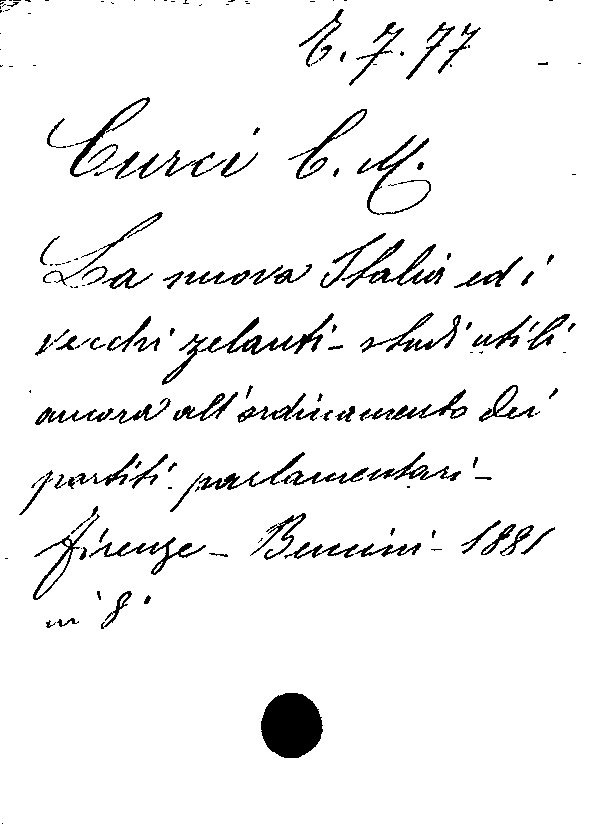 E. 7. 77
Curci C. M.
La nuova Italia ed i
vecchi zelanti - studi utili
ancora all'ordinamento dei
partiti parlamentari -
Firenze - Bencini - 1881
in 8°